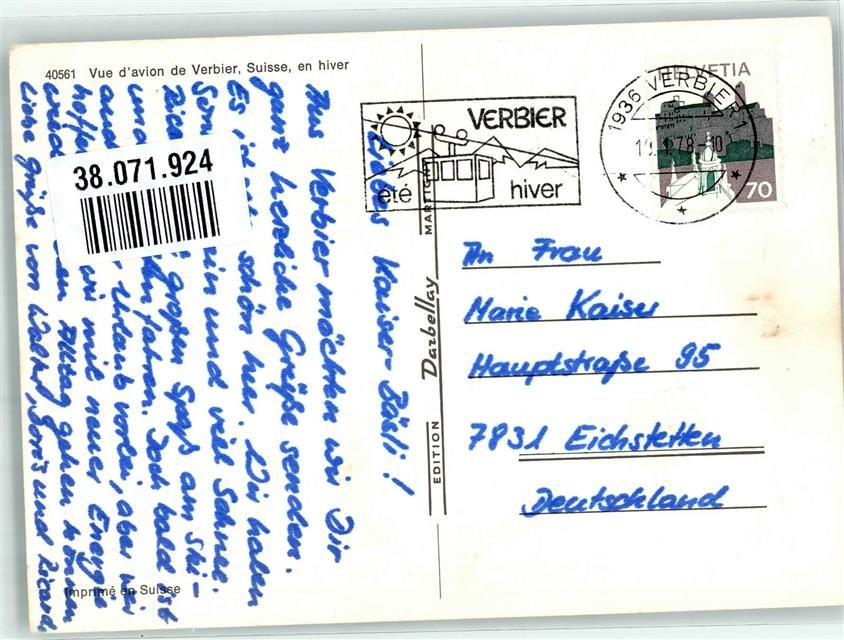 40561 Vue d'avion de Verbier, Suisse, en hiver
Liebes Kaiser-Bäsli!
Aus Verbier möchten wir Dir
ganz herzliche Grüße senden.
Es ist schön hier. Wir haben
Sonn ein und viel Schnee.
Rica großen Spaß am Ski-
und hn fahren. Doch bald ist
auch Urlaub vorbei, aber wir
hoffe wir mit neuer Energie
wied den Alltag gehen können
Liebe Grüße von Walter, Doris und Ricard
38.071.924
Imprimé en Suisse
EDITION Darbellay MARTIGNY
VERBIER
été hiver
1936 VERBIER
1.78-10
HELVETIA
70
An Frau
Marie Kaiser
Hauptstraße 95
7831 Eichstetten
Deutschland